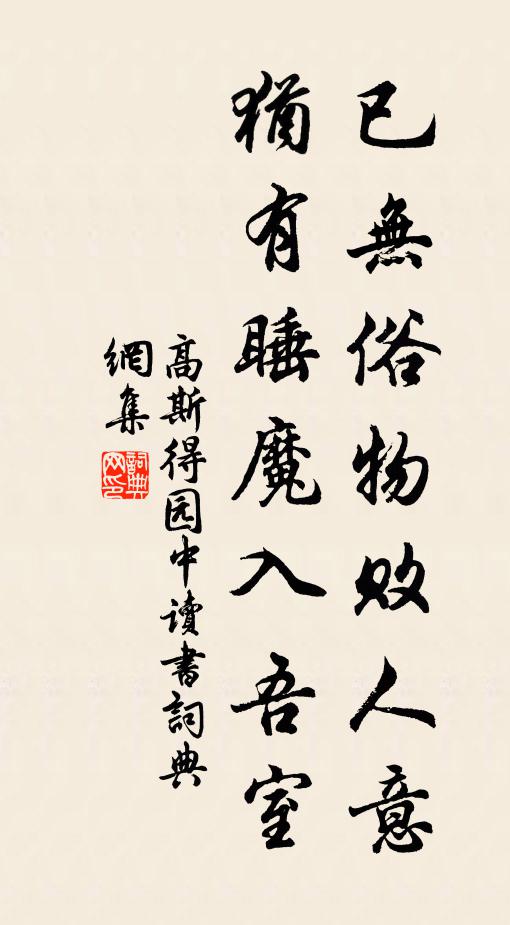 已無俗物敗人意
猶有睡魔入吾室
高斯得园中讀書詞典
網集
詞典网印